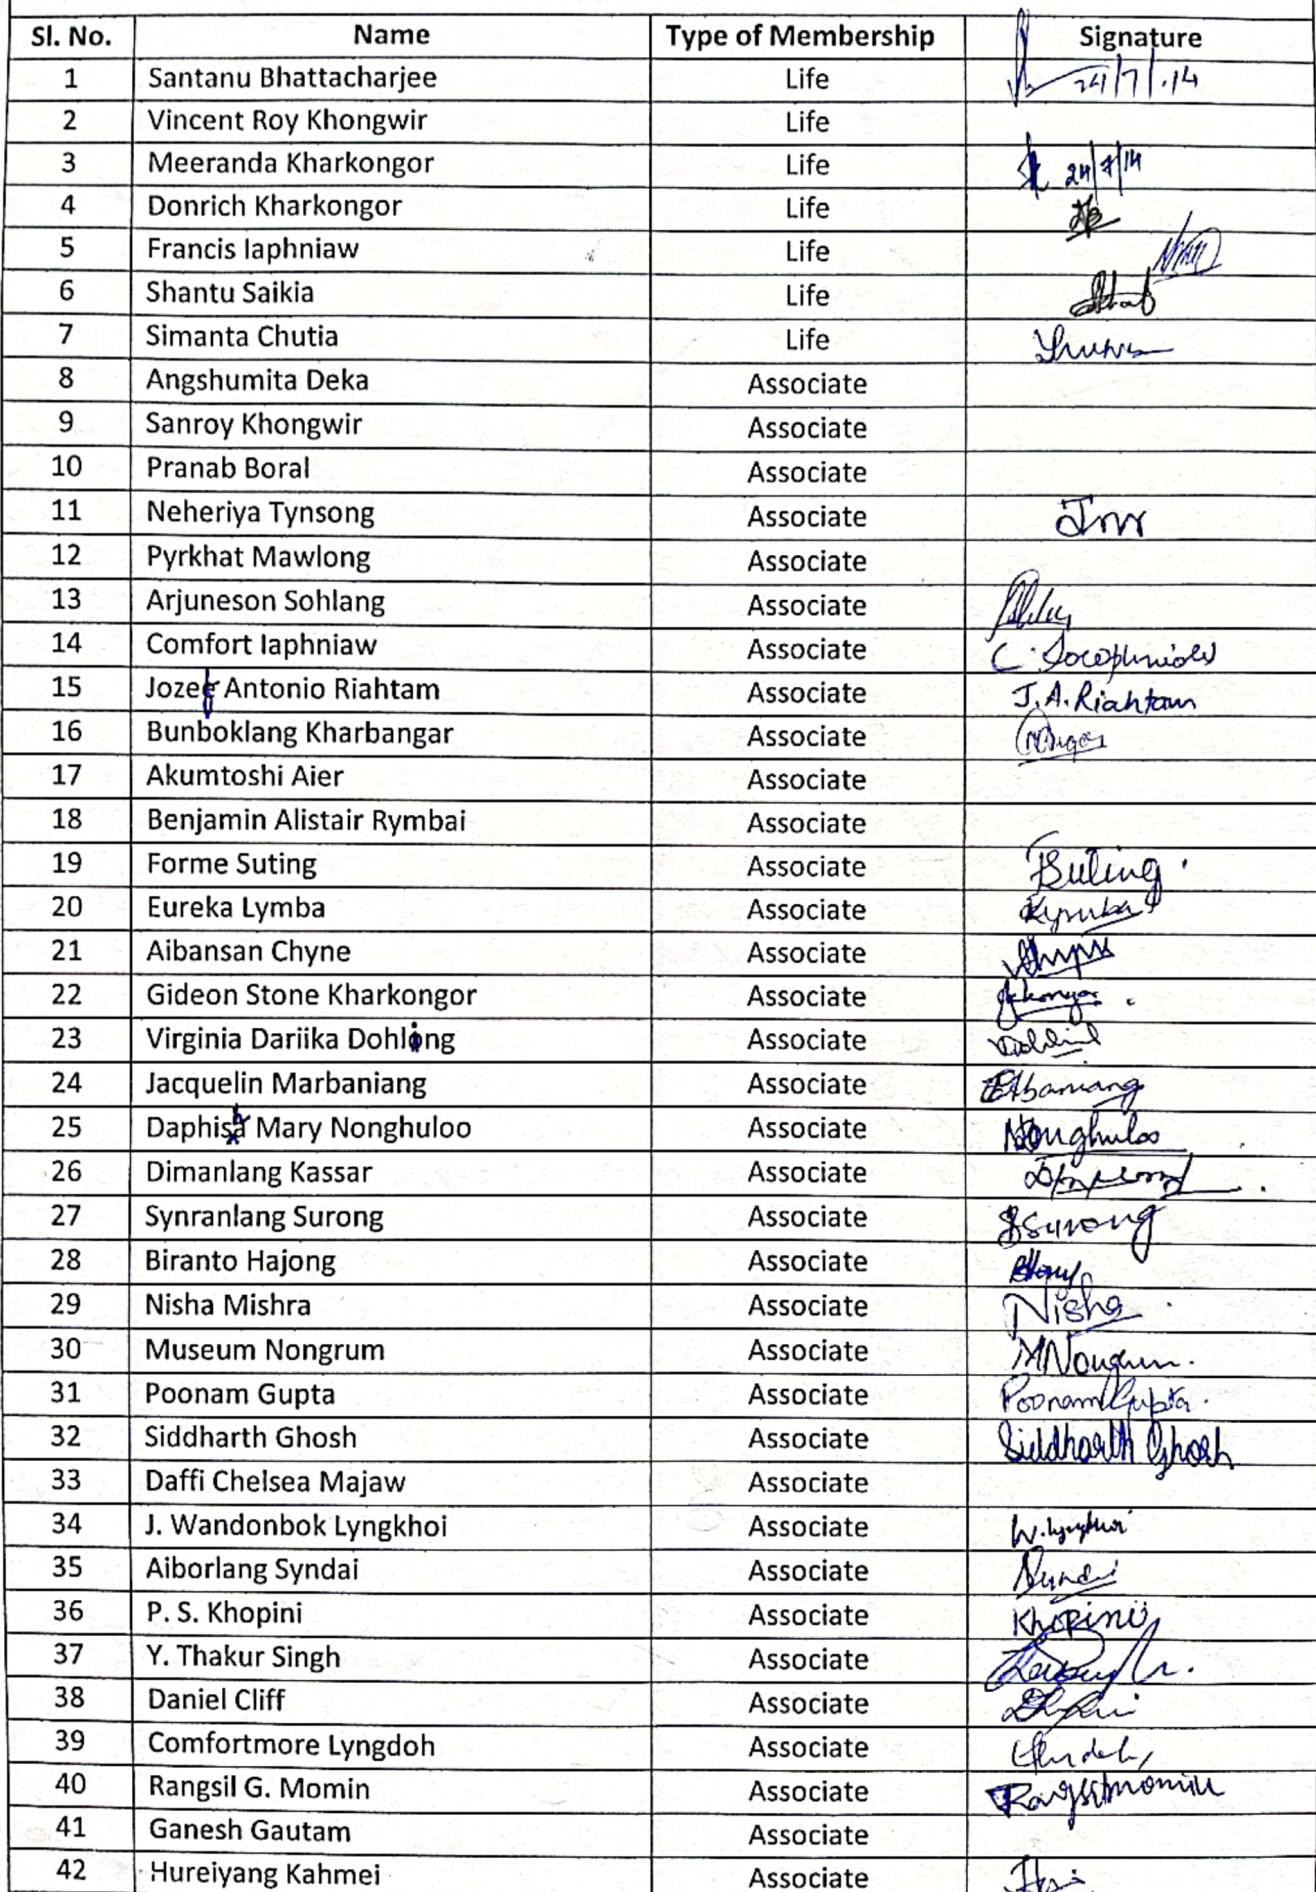 Sl. No. Name Type of Membership Signature
1 Santanu Bhattacharjee Life 24/7/.14
2 Vincent Roy Khongwir Life
3 Meeranda Kharkongor Life 24/7/14
4 Donrich Kharkongor Life
5 Francis Iaphniaw Life
6 Shantu Saikia Life
7 Simanta Chutia Life
8 Angshumita Deka Associate
9 Sanroy Khongwir Associate
10 Pranab Boral Associate
11 Neheriya Tynsong Associate
12 Pyrkhat Mawlong Associate
13 Arjuneson Sohlang Associate
14 Comfort Iaphniaw Associate
15 Jozef Antonio Riahtam Associate J.A. Riahtam
16 Bunboklang Kharbangar Associate
17 Akumtoshi Aier Associate
18 Benjamin Alistair Rymbai Associate
19 Forme Suting Associate FSuting
20 Eureka Lymba Associate
21 Aibansan Chyne Associate
22 Gideon Stone Kharkongor Associate
23 Virginia Dariika Dohling Associate
24 Jacquelin Marbaniang Associate
25 Daphisha Mary Nonghuloo Associate Nonghuloo
26 Dimanlang Kassar Associate
27 Synranlang Surong Associate SSurong
28 Biranto Hajong Associate
29 Nisha Mishra Associate Nisha
30 Museum Nongrum Associate MNongrum.
31 Poonam Gupta Associate Poonam Gupta.
32 Siddharth Ghosh Associate Siddharth Ghosh
33 Daffi Chelsea Majaw Associate
34 J. Wandonbok Lyngkhoi Associate W. Lyngkhoi
35 Aiborlang Syndai Associate
36 P. S. Khopini Associate Khopini
37 Y. Thakur Singh Associate
38 Daniel Cliff Associate
39 Comfortmore Lyngdoh Associate
40 Rangsil G. Momin Associate RangsilMomin
41 Ganesh Gautam Associate
42 Hureiyang Kahmei Associate